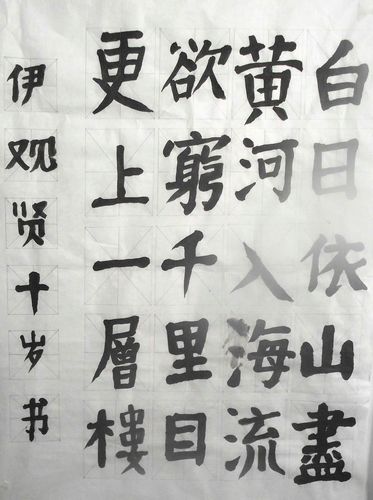 白日依山盡
黄河入海流
欲窮千里目
更上一層樓
伊观贤十岁书